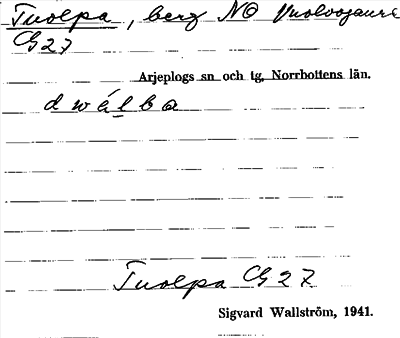 Tuolpa, berg NO Vuolvojaure
C27
Arjeplogs sn och tg. Norrbottens län.
dwélba
Tuolpa C27
Sigvard Wallström, 1941.